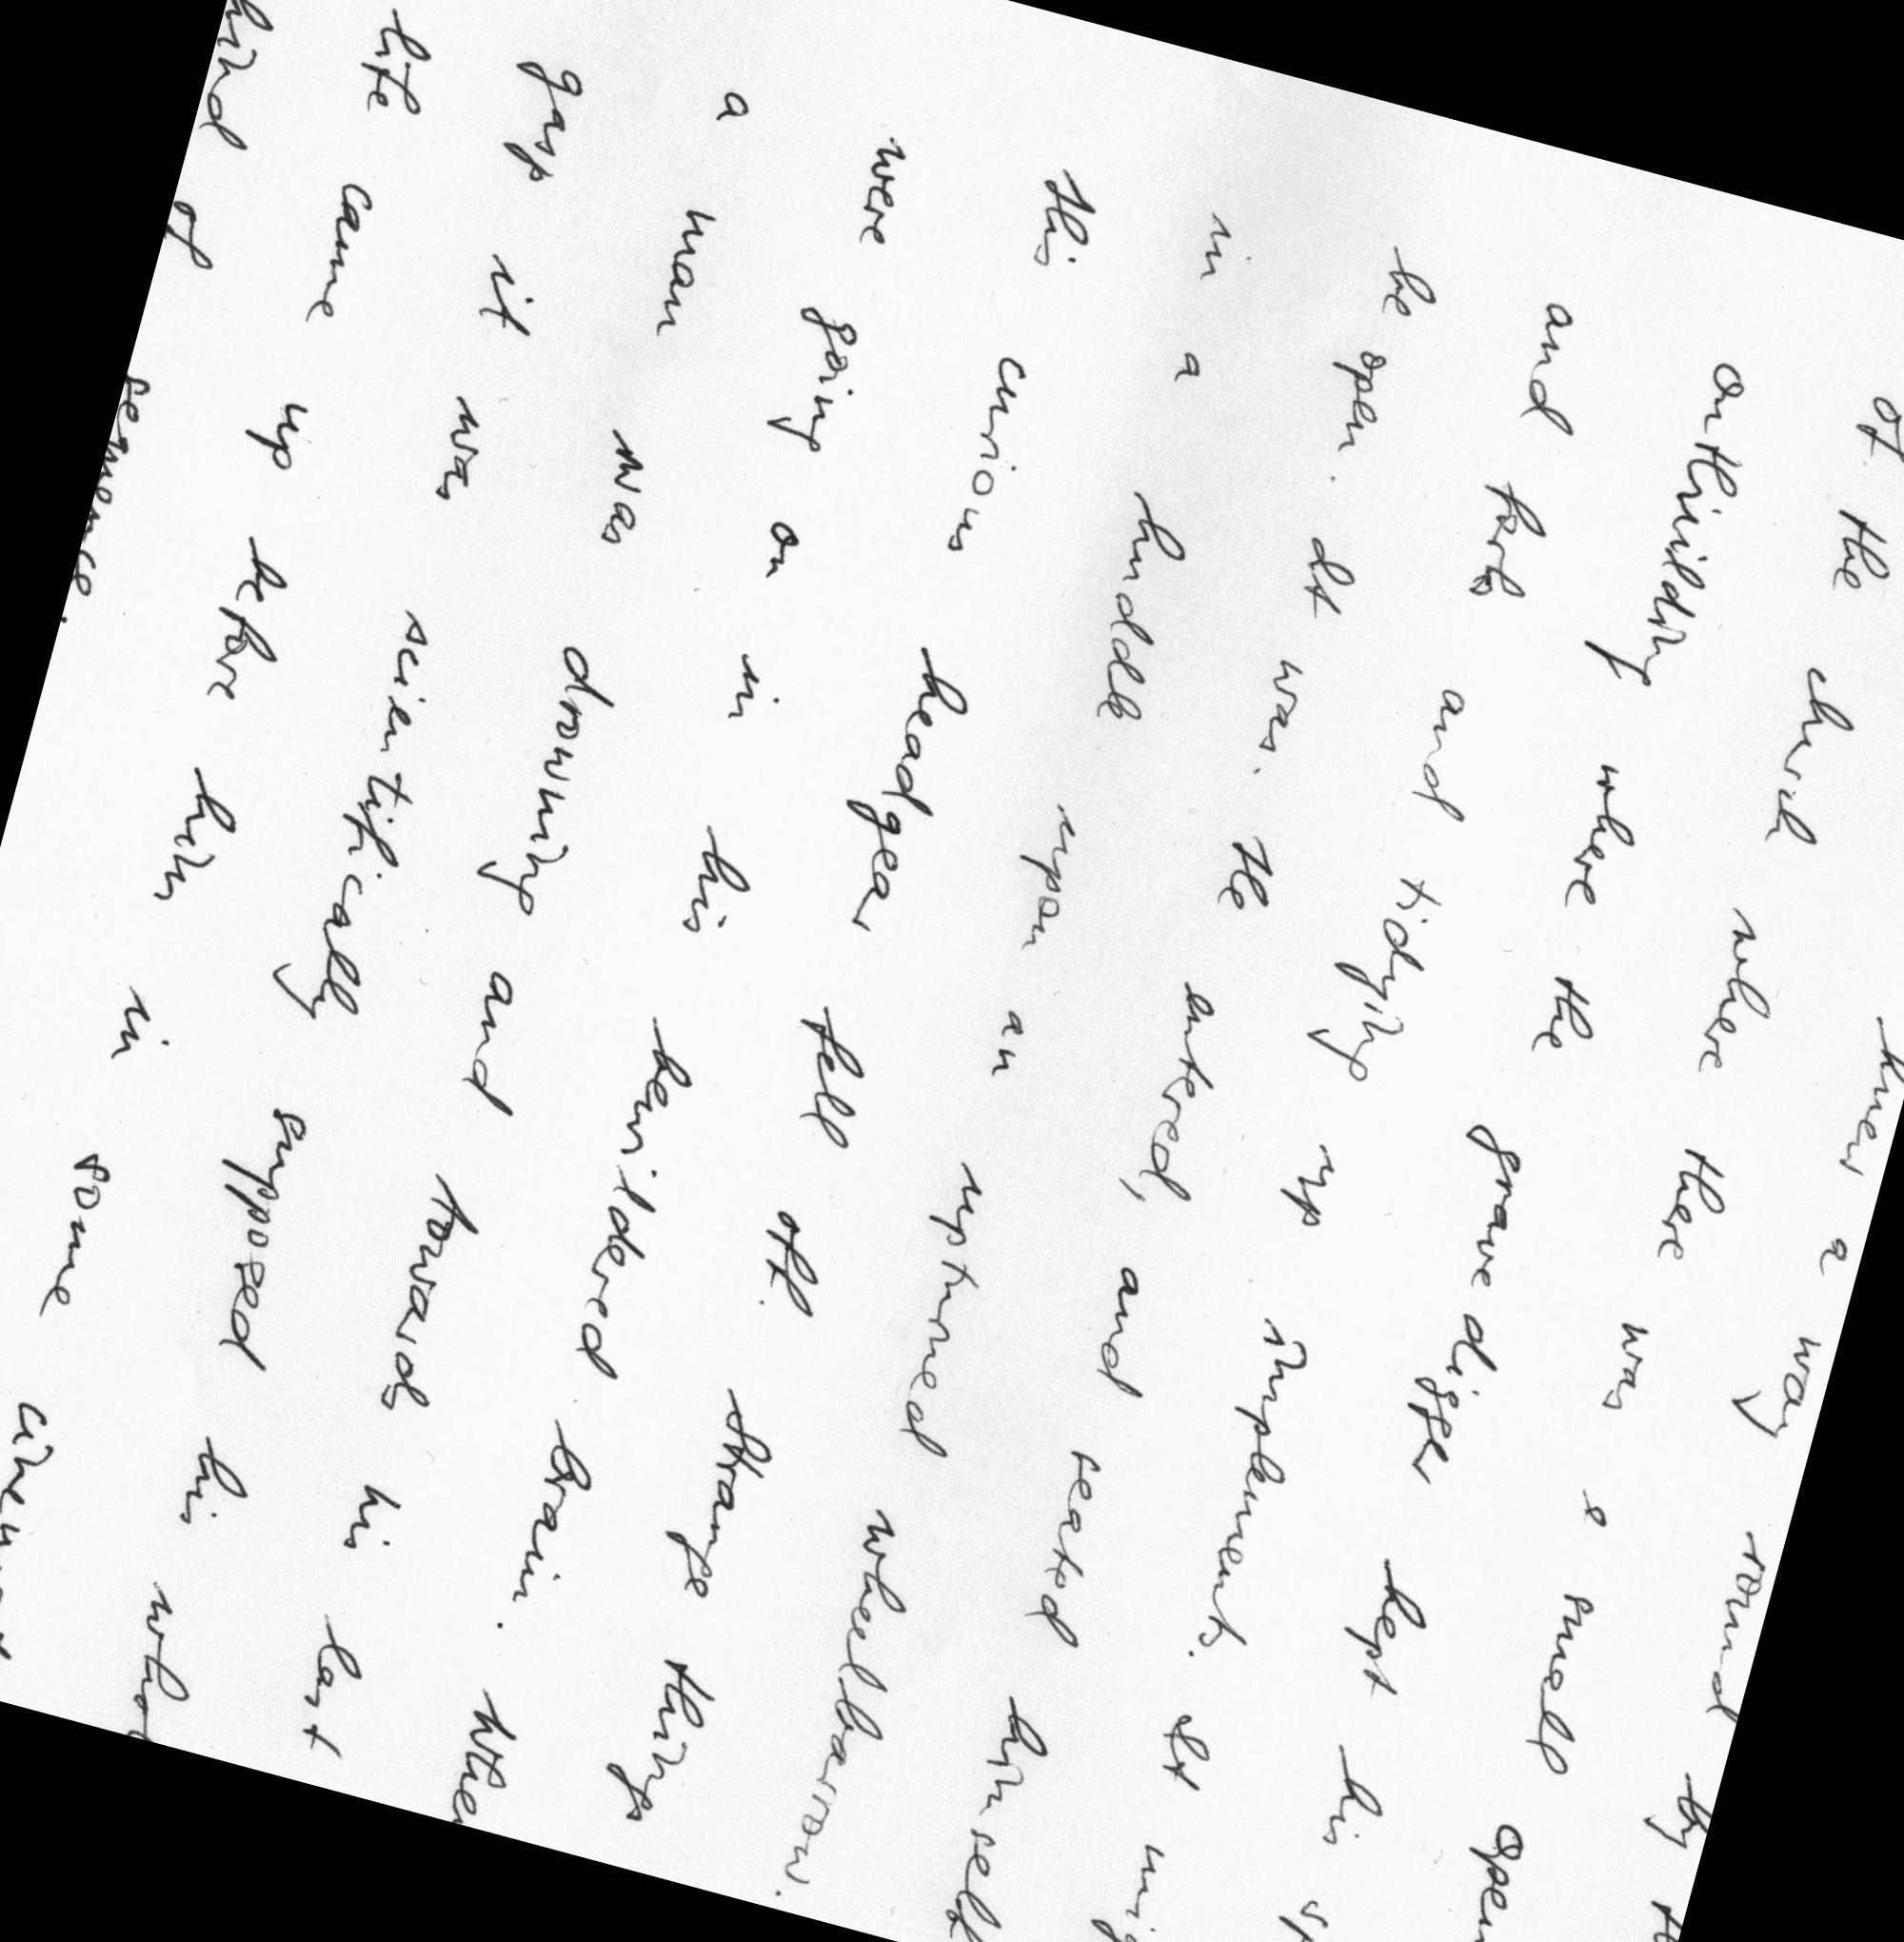 knew a way round by
of the church where there was a small open
outbuilding where the gravedigger kept his
and fork and tidying up implements. It
be open. It was. He entered, and seated himself
in a huddle upon an upturned wheelbarrow.
this curious headgear fell off. Strange things
were going on in his bewildered brain. When
a man was drowning and towards his last
gasp it was scientifically supposed his
life came up before him in some
kind of sequence.